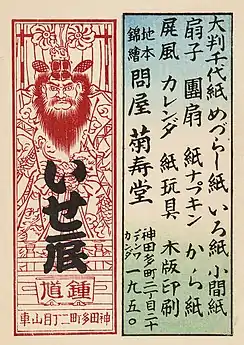 大判千代紙 めづらし紙 いろ紙 小間紙
扇子 團扇 紙ナプキン から紙
屏風 カレンダ 紙玩具 木版印刷
地本
錦繪
問屋 菊寿堂
神田多町二丁目二十
デンワ
カンダ
一九五〇
いせ辰
鍾馗
神田多町二丁目山車